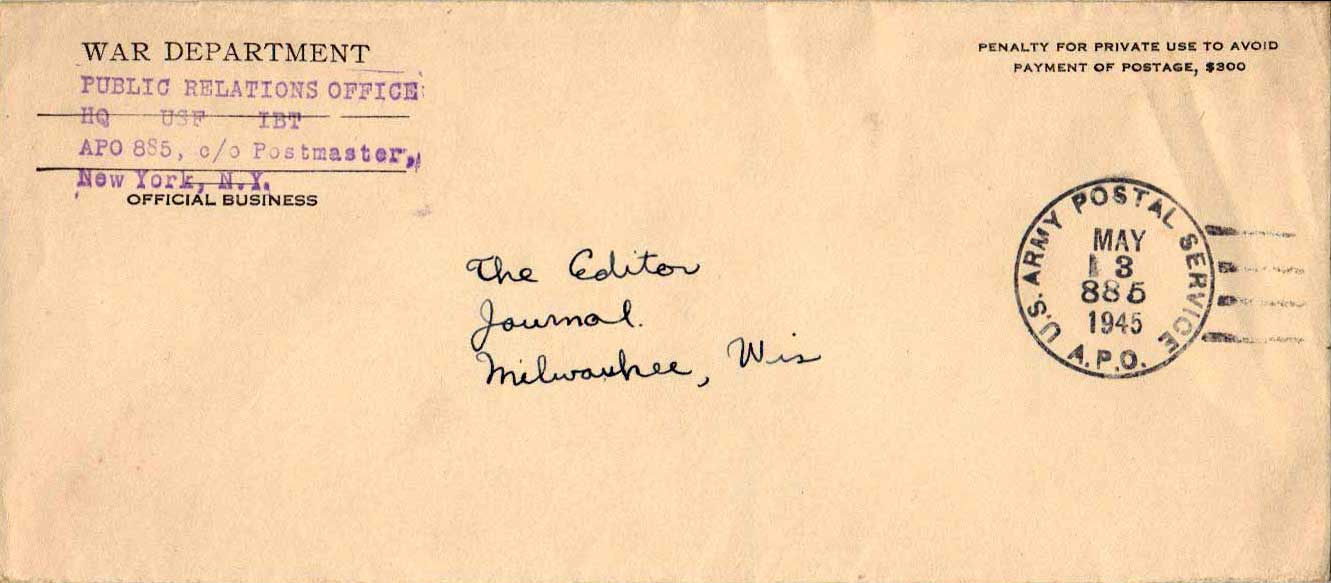 WAR DEPARTMENT
PUBLIC RELATIONS OFFICE
HQ USF IBT
APO 885, c/o Postmaster,
New York, N.Y.
OFFICIAL BUSINESS
PENALTY FOR PRIVATE USE TO AVOID
PAYMENT OF POSTAGE, $300
U.S. ARMY POSTAL SERVICE
MAY
13
885
1945
A.P.O.
The Editor
Journal.
Milwaukee, Wis